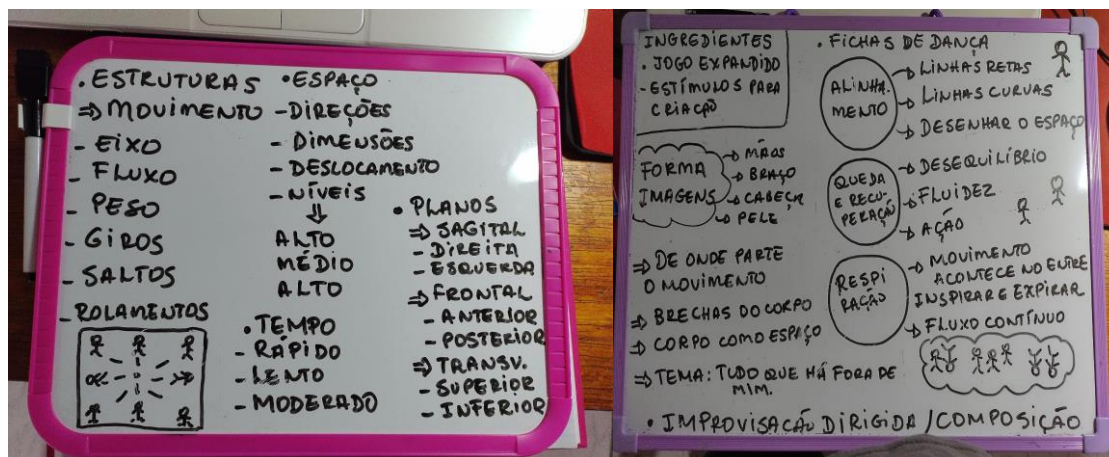 • ESTRUTURAS
⇒ MOVIMENTO
- EIXO
- FLUXO
- PESO
- GIROS
- SALTOS
- ROLAMENTOS
• ESPAÇO
- DIREÇÕES
- DIMENSÕES
- DESLOCAMENTO
- NÍVEIS
⇓
ALTO
MÉDIO
ALTO
• TEMPO
- RÁPIDO
- LENTO
- MODERADO
• PLANOS
⇒ SAGITAL
- DIREITA
- ESQUERDA
⇒ FRONTAL
- ANTERIOR
- POSTERIOR
⇒ TRANSV.
- SUPERIOR
- INFERIOR
INGREDIENTES
• JOGO EXPANDIDO
- ESTÍMULOS PARA
CRIAÇÃO
FORMA
IMAGENS
→ MÃOS
→ BRAÇO
→ CABEÇA
→ PELE
⇒ DE ONDE PARTE
O MOVIMENTO
⇒ BRECHAS DO CORPO
⇒ CORPO COMO ESPAÇO
⇒ TEMA: TUDO QUE HÁ FORA DE
MIM.
• FICHAS DE DANÇA
ALINHA-
MENTO
→ LINHAS RETAS
→ LINHAS CURVAS
→ DESENHAR O ESPAÇO
QUEDA
E RECU-
PERAÇÃO
→ DESEQUILÍBRIO
→ FLUIDEZ
→ AÇÃO
RESPI
RAÇÃO
→ MOVIMENTO
ACONTECE NO ENTRE
INSPIRAR E EXPIRAR
→ FLUXO CONTÍNUO
• IMPROVISAÇÃO DIRIGIDA / COMPOSIÇÃO